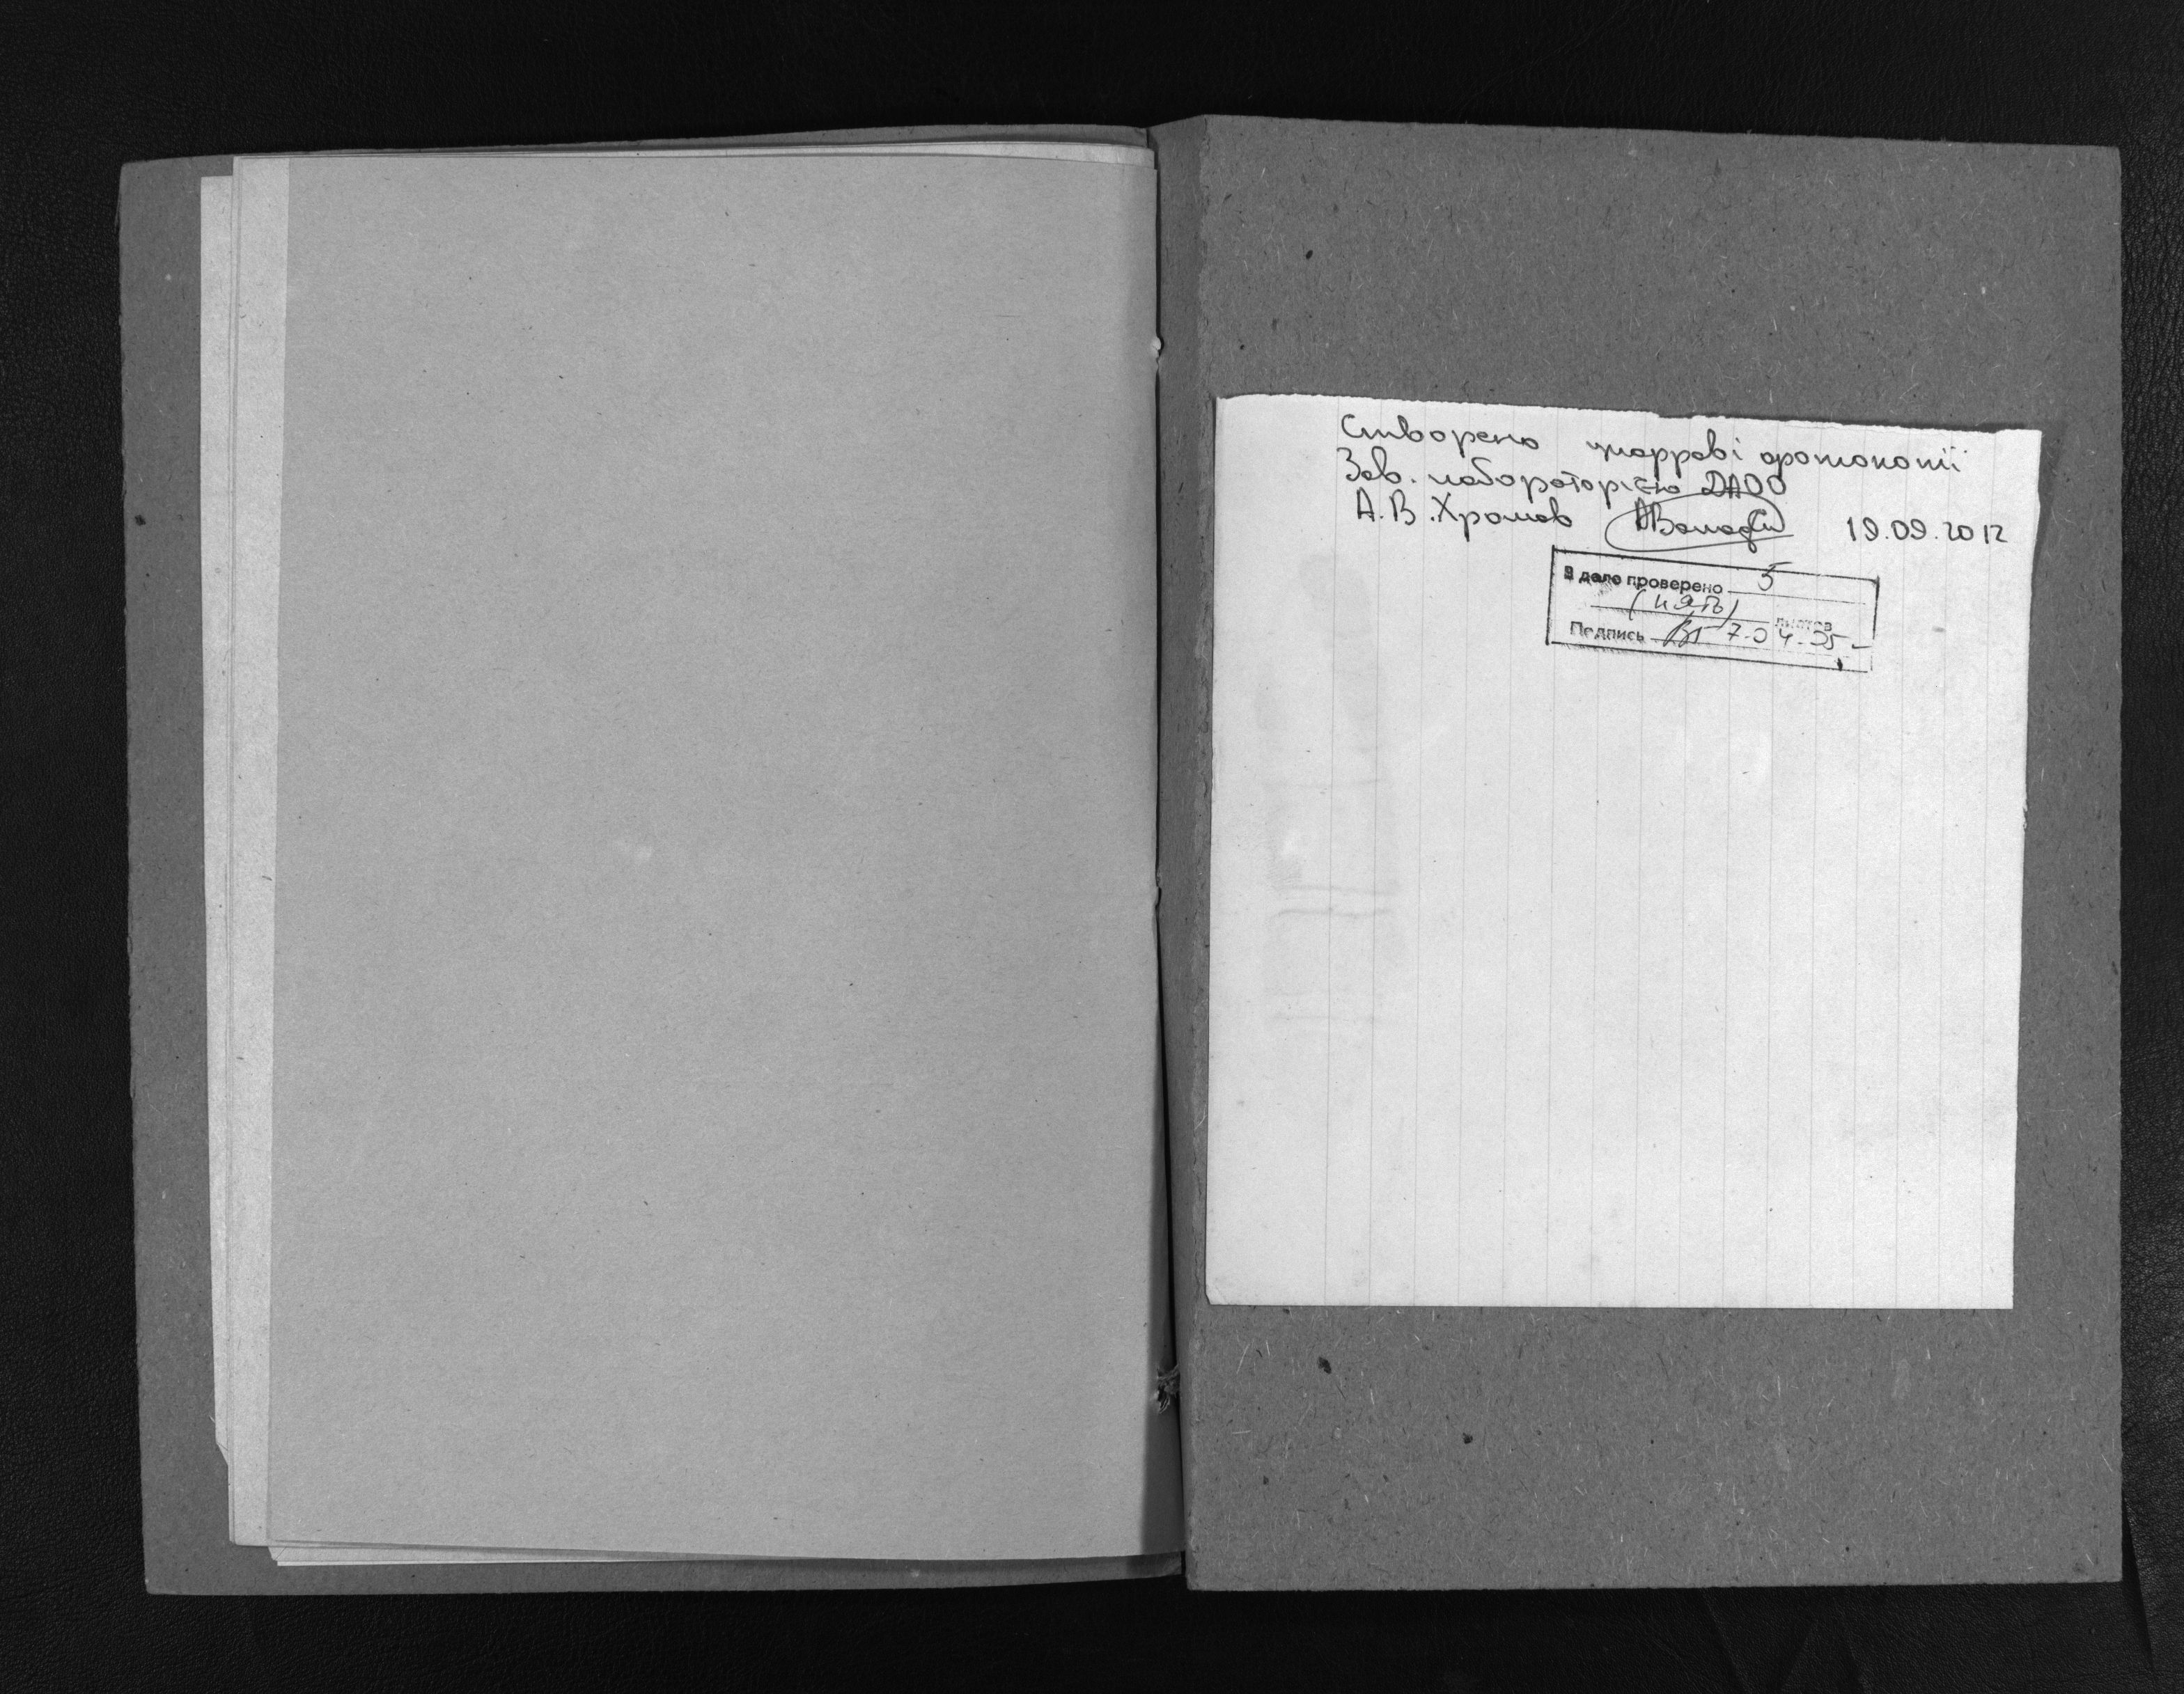 Створено цифрові фотокопії
Зав. лабораторією ДАОО
А.В. Хромов 19.09.2012
В деле проверено 5
(пять) листов
Подпись 7-04-05-